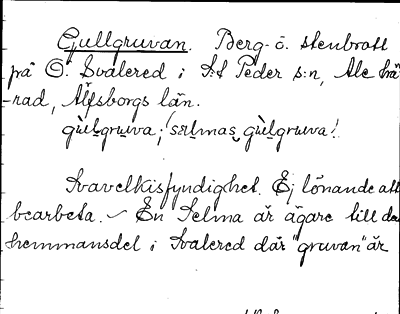 Gullgruvan. Berg- o. stenbrott
på Ö. Svalered i S:t Peder s:n, Ale hä
-rad, Älfsborgs län.
gùl̠gru̠va; ! sælmas gùl̠gruva!
Svavelkisfyndighet. Ej lönande att
bearbeta. – En Selma är ägare till den
hemmansdel i Svalered där "gruvan" är